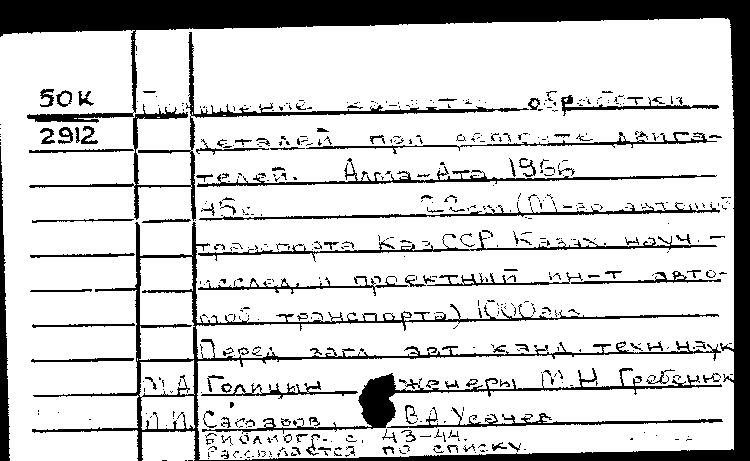 50К Повышение качества обработки
2912 деталей при ремонте двига-
телей. Алма-Ата, 1966
45с. 22см (М-во автомоб.
транспорта Каз.ССР. Казах. науч.-
исслед. и проектный ин-т авто-
моб. транспорта) 1000экз.
Перед загл. авт.: канд. техн. наук
М.А. Голицын, женеры М.Н. Гребенюк
И.И. Сафаров, В.А. Усачев
Библиогр.: с. 43-44.
Рассылается по списку.